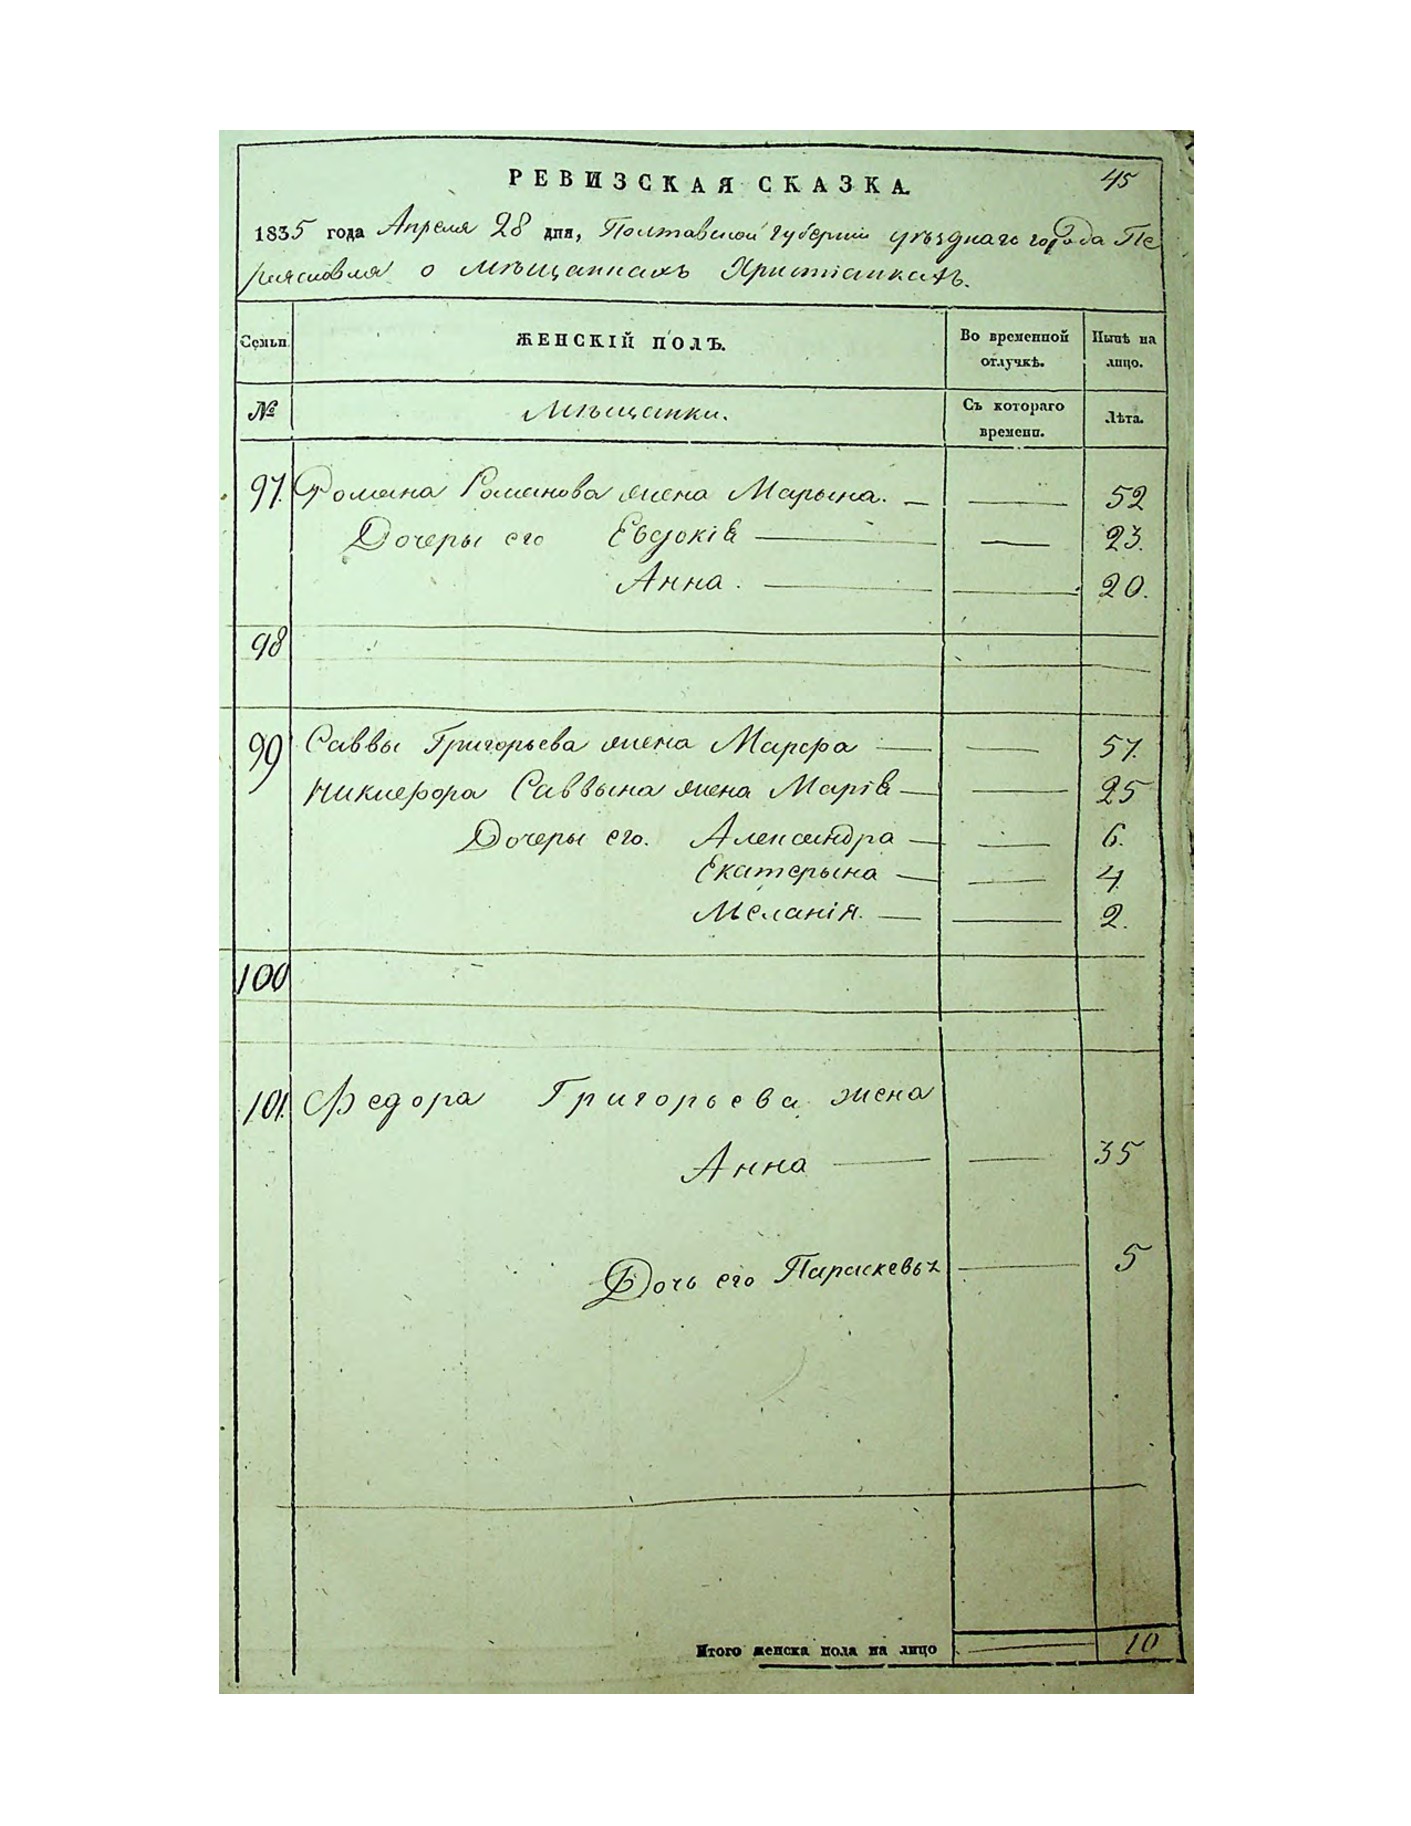 45
РЕВИЗСКАЯ СКАЗКА.
1835 года Апреля 28 дня, Полтавской Губернии уѣзднаго города Пе
реяславля о мѣщанкахъ Христіанкахъ.
Семьи. ЖЕНСКІЙ ПОЛЪ. Во временной отлучкѣ. Нынѣ на лицо.
№ Мѣщанки. Съ котораго времени. Лѣта.
97. Романа Романова жена Марьина. — — 52
Дочеры его Евдокія — — 23.
Анна. — — 20.
98
99 Саввы Григорьева жена Марфа — — 57.
Никифора Саввына жена Марія — — 25
Дочеры его. Александра — — 6.
Екатерына — — 4.
Меланія. — — 2.
100
101. Федора Григорьева жена
Анна — — 35
Дочь его Параскевья — 5
Итого женска пола на лицо — 10